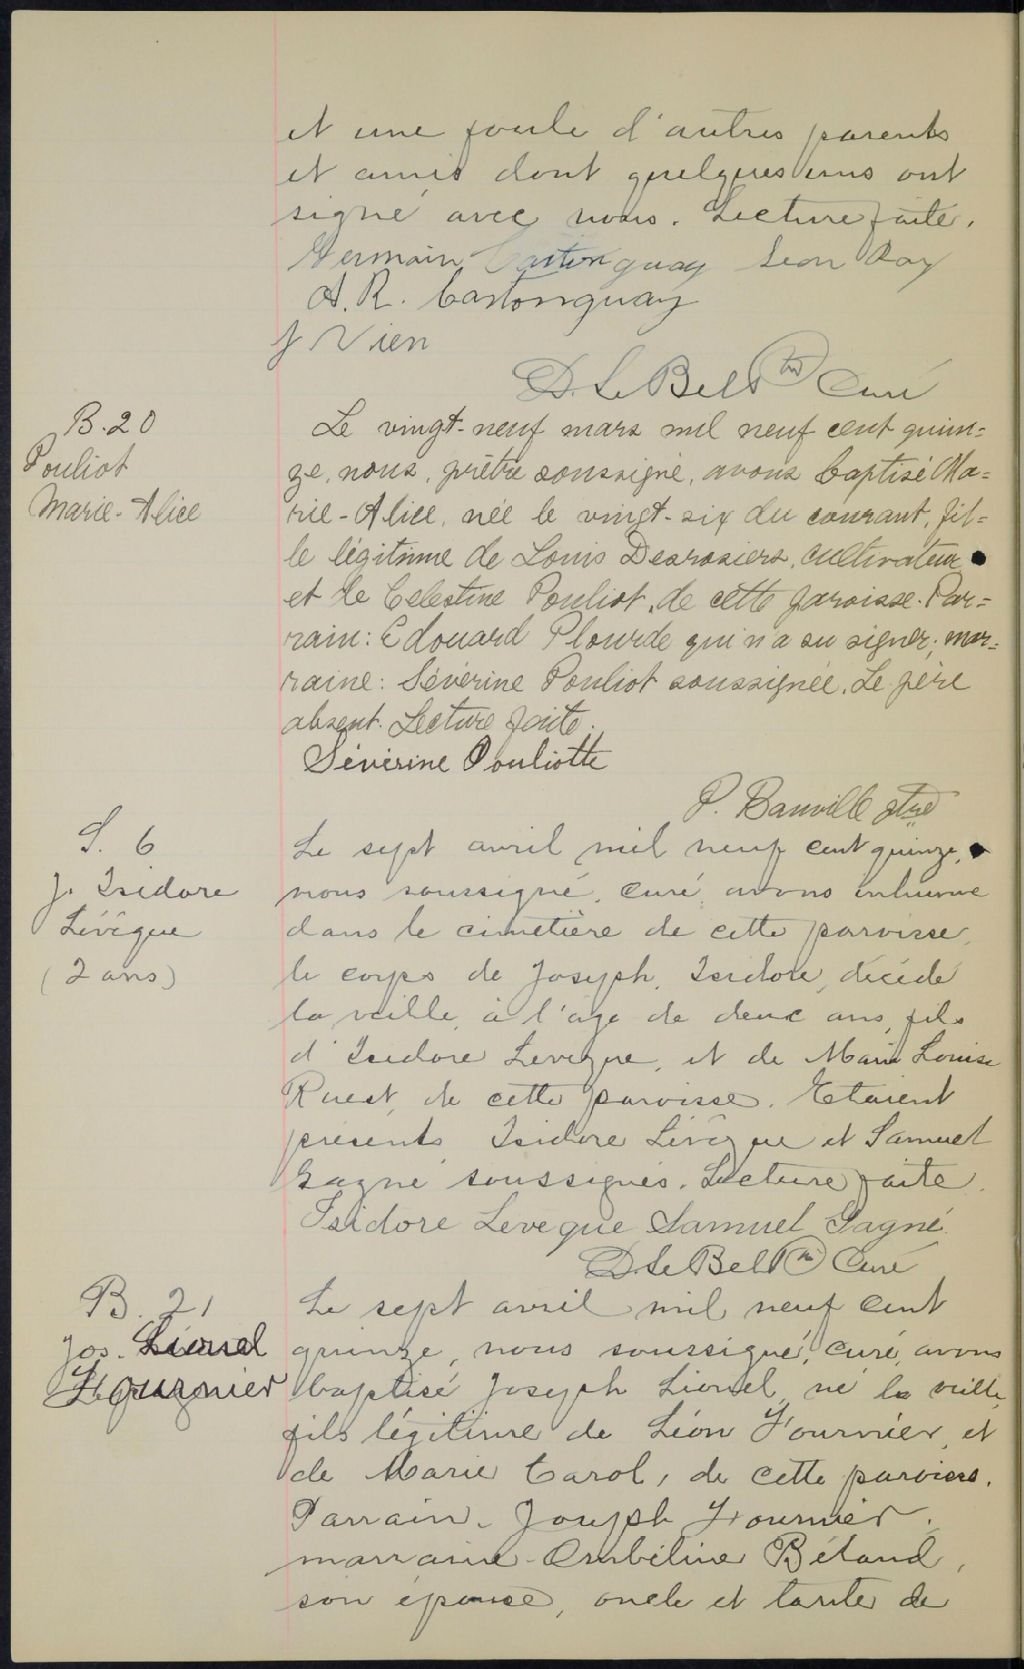 et une foule d'autres parents
et amis dont quelques uns ont
signé avec nous. Lecture faite.
Germain Castonguay Leon Roy
A. R. Castonguay
J Vien
D. Le Bel Ptre Curé
B. 20
Pouliot
Marie-Alice
Le vingt-neuf mars mil neuf cent quin=
ze, nous, prêtre soussigné, avons baptisé Ma=
rie-Alice, née le vingt-six du courant, fil=
le légitime de Louis Desrosiers, cultivateur
et de Celestine Pouliot, de cette paroisse. Par=
rain: Edouard Plourde qui n'a su signer; mar=
raine: Séverine Pouliot soussignée. Le père
absent. Lecture faite.
Séverine Pouliotte
P. Banville ptre
S. 6
J. Isidore
Lévêque
(2 ans)
Le sept avril mil neuf cent quinze,
nous soussigné, curé, avons inhumé
dans le cimetière de cette paroisse,
le corps de Joseph, Isidore, décédé
la veille, à l'age de deux ans, fils
d'Isidore Leveque, et de Marie Louise
Ruest, de cette paroisse. Etaient
présents Isidore Lévêque et Samuel
Gagné soussignés. Lecture faite.
Isidore Leveque Samuel Gagné
D. Le Bel Ptre Curé
B. 21
Jos. Lionel
Fournier
Le sept avril mil neuf cent
quinze, nous soussigné, curé, avons
baptisé Joseph Lionel, né la veille,
fils légitime de Léon Fournier, et
de Marie Carol, de cette paroisse.
Parrain. Joseph Fournier,
marraine. Ombéline Béland,
son épouse, oncle et tante de